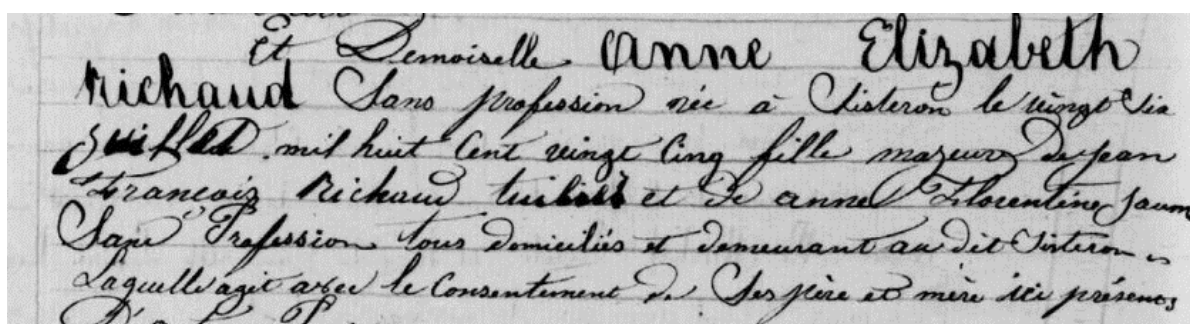 Et Demoiselle Anne Elizabeth
Richaud Sans profession née à Sisteron le vingt Six
Juillet mil huit Cent vingt Cinq fille mageure de jean
François Richaud et de anne Florentine Jaume
Sans Profession tous domiciliés et demeurant au dit Sisteron
Laquelle agit avec le Consentement de Ses père et mère ici présents